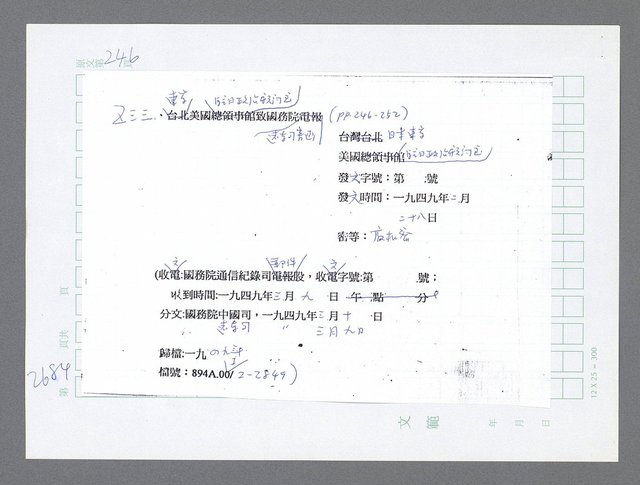 原文第246頁
東京 駐日政治顧問包
乙三三、台北美國總領事館致國務院電報 (PP.246-252)
遠東司書函
台灣台北 日本東京
美國總領事館 駐日政治顧問包
發文字號：第　　號
發文時間：一九四九年二月
二十八日
密等：
文 郵件 文
(收電:國務院通信紀錄司電報股，收電字號:第　　號；
收到時間:一九四九年三月九日 午 點 分
分文:國務院中國司，一九四九年三月十日
遠東司 〃 三月九日
歸檔:一九四九年
檔號：894A.00/2-2849)
2684
第　頁共　頁
12 X 25 = 300
文 範
年 月 日